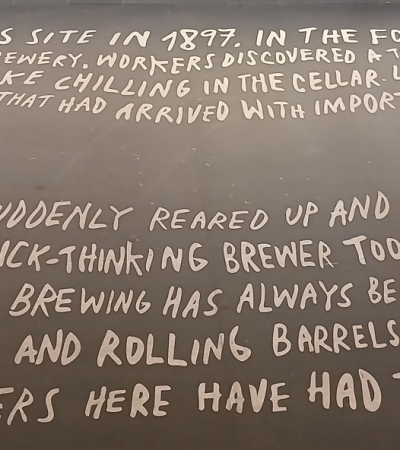 S SITE IN 1897. IN THE FO
EWERY. WORKERS DISCOVERED A T
KE CHILLING IN THE CELLAR.
THAT HAD ARRIVED WITH IMPORT
UDDENLY REARED UP AND
ICK-THINKING BREWER TOO
BREWING HAS ALWAYS BE
AND ROLLING BARRELS
ERS HERE HAVE HAD